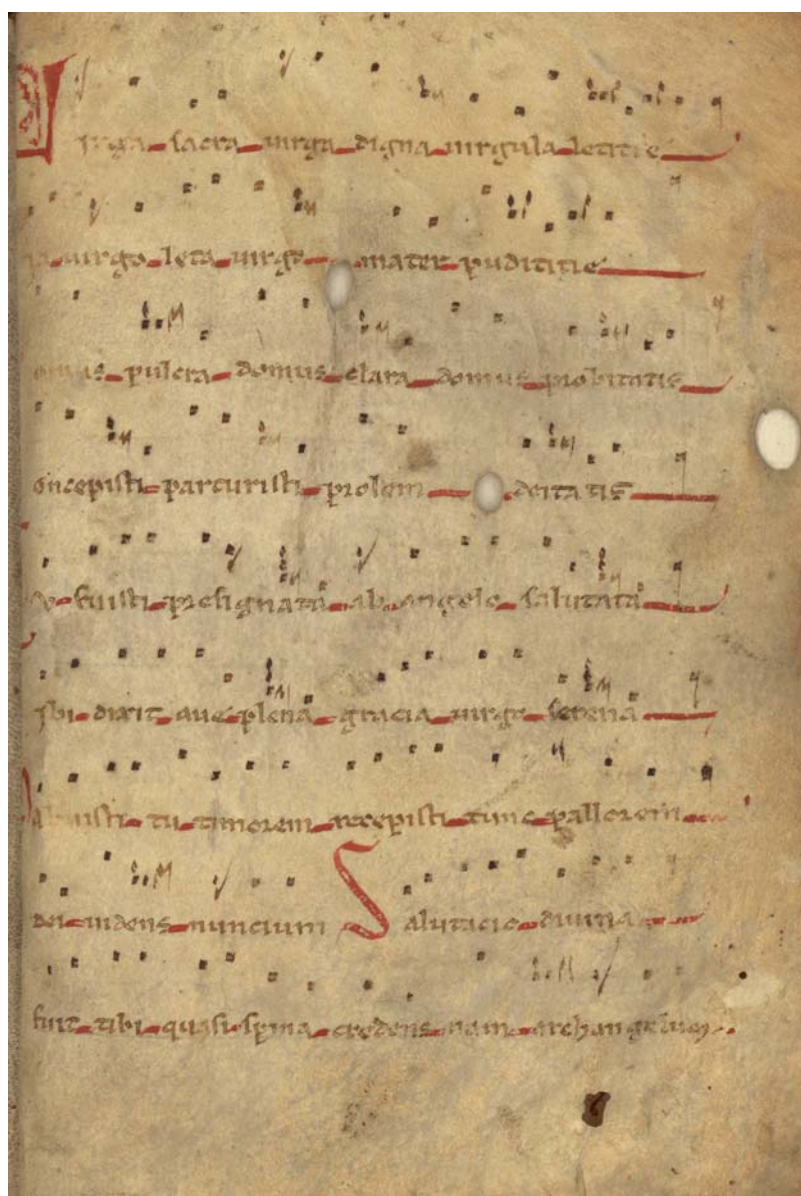 Virga sacra virga digna virgula letitie
virgo leta virgo mater pudititie
pulcra domus clara domus probitatis
oncepisti parturisti prolem deitatis
fuisti presignata ab angelo salutata
ibi dixit ave plena gracia virgo serena
abuisti tu timorem recepisti tunc pallorem
dei videns nuncium Salutacio divina
fuit tibi quasi spina credens nam archangelum